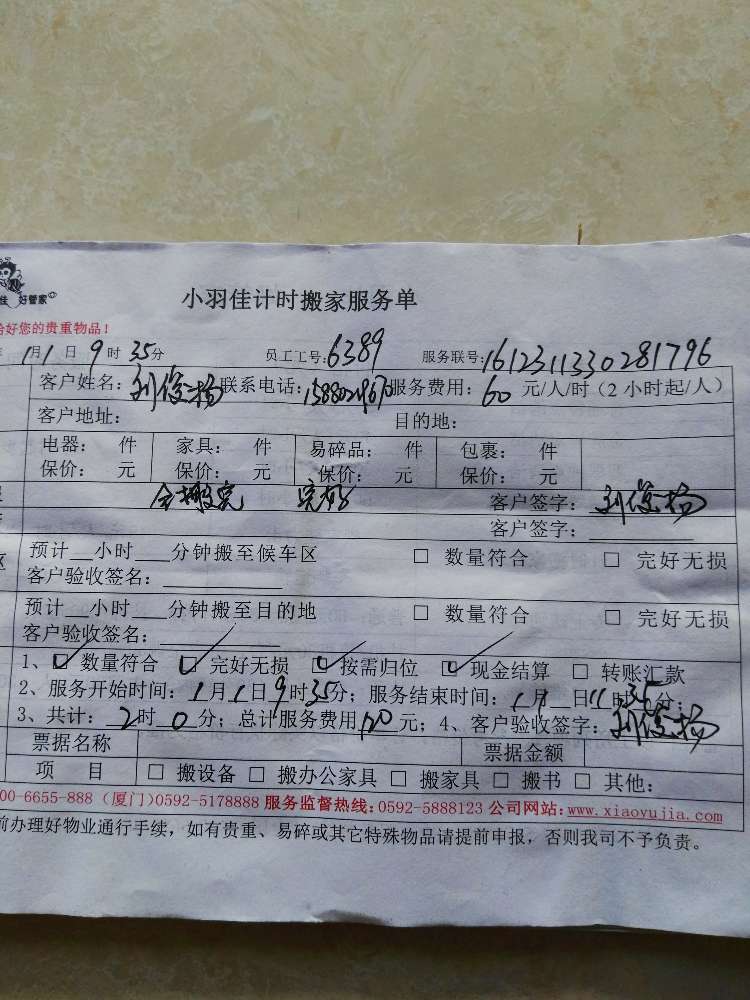 佳 好管家
小羽佳计时搬家服务单
好您的贵重物品！
1月1日9时35分 员工工号：6389 服务联号：1612311330281796
客户姓名：刘俊杨 联系电话： 服务费用：60元/人/时（2小时起/人）
客户地址： 目的地：
电器： 件 家具： 件 易碎品： 件 包裹： 件
保价： 元 保价： 元 保价： 元 保价： 元
全搬完 完好 客户签字：刘俊杨
客户签字：
预计__小时___分钟搬至候车区 □ 数量符合 □ 完好无损
客户验收签名：
预计__小时___分钟搬至目的地 □ 数量符合 □ 完好无损
客户验收签名：
1、☑ 数量符合 ☑ 完好无损 ☑ 按需归位 ☑ 现金结算 □ 转账汇款
2、服务开始时间：1月1日9时35分；服务结束时间：1月1日11时35分；
3、共计：2时0分；总计服务费用120元；4、客户验收签字：刘俊杨
票据名称 票据金额
项 目 □ 搬设备 □ 搬办公家具 □ 搬家具 □ 搬书 □ 其他：
00-6655-888（厦门）0592-5178888 服务监督热线：0592-5888123 公司网站：www.xiaoyujia.com
前办理好物业通行手续，如有贵重、易碎或其它特殊物品请提前申报，否则我司不予负责。